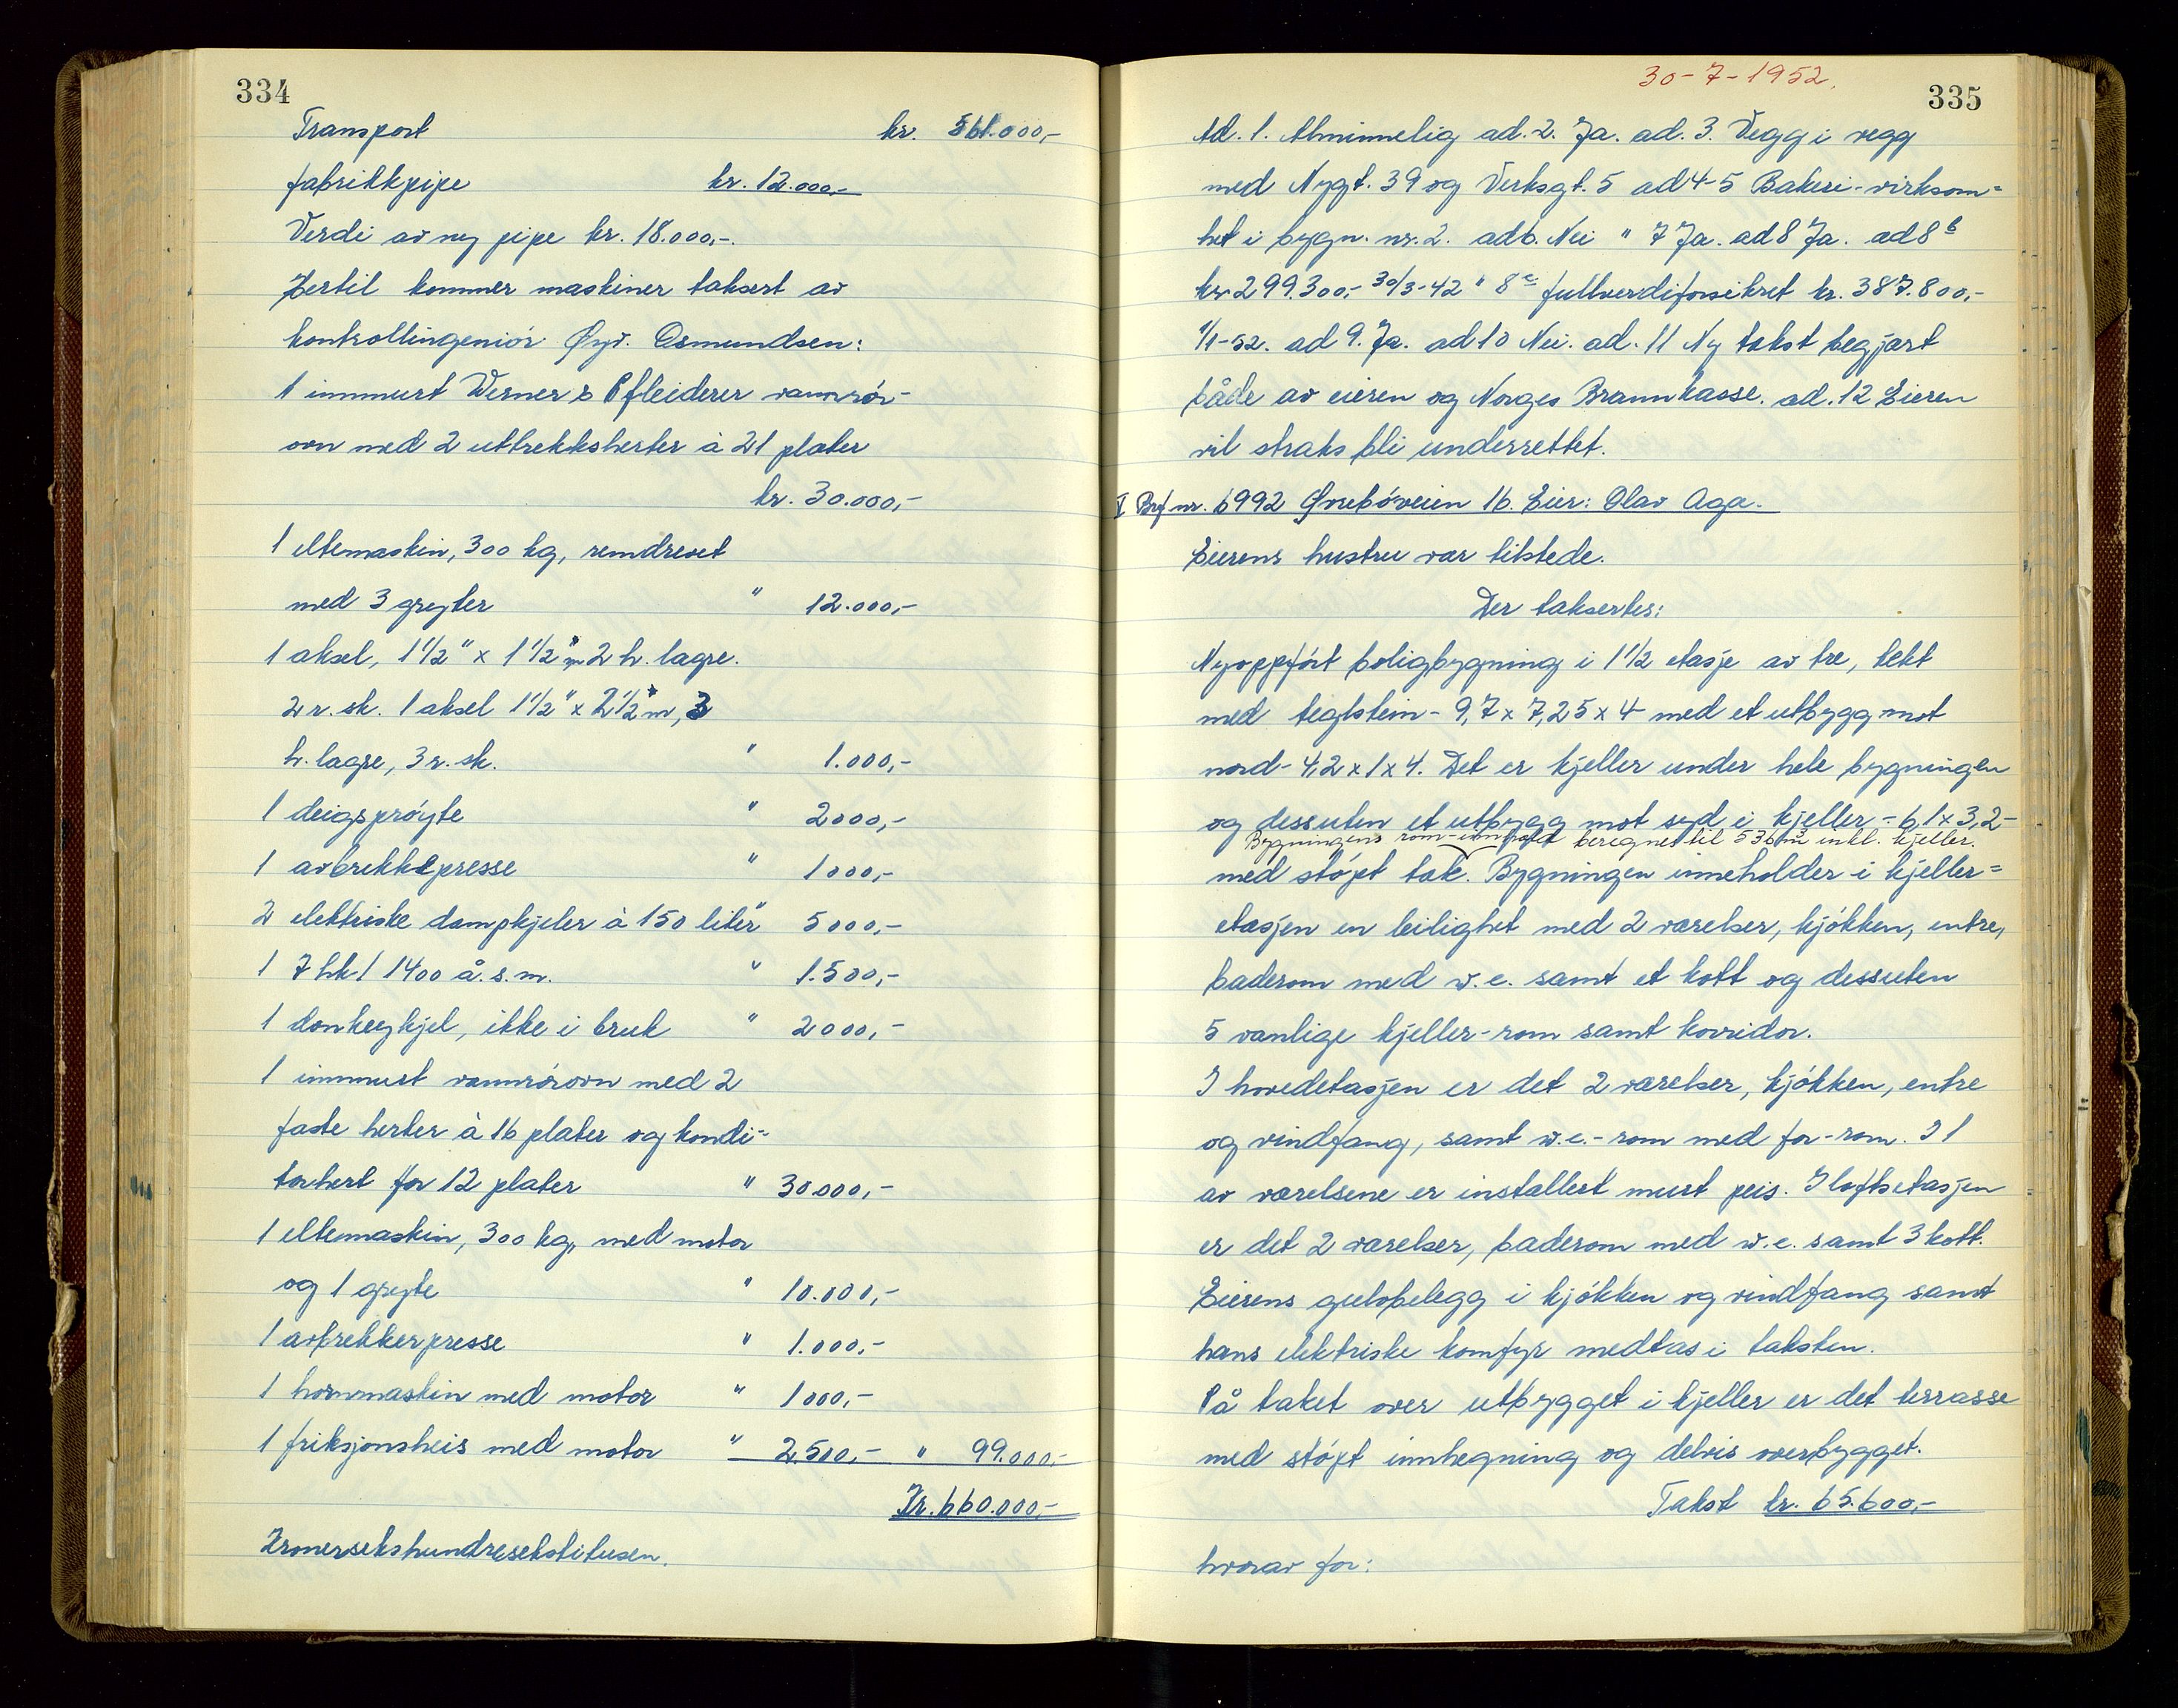 334
Transport kr. 561.000,-
fabrikkpipe kr. 12.000,-
Verdi av ny pipe kr. 18.000,-.
Hertil kommer maskiner taksert av
kontrollingeniör Øyv. Osmundsen:
1 innmurt Werner & Pfleiderer vannrör-
ovn med 2 uttrekksherter à 21 plater
kr. 30.000,-
1 eltemaskin, 300 kg, remdrevet
med 3 gryter " 12.000,-
1 aksel, 1 1/2" x 1 1/2 m 2 h. lagre.
2 r. sk. 1 aksel 1 1/2" x 2 1/2 m, 3
h. lagre, 3 r. sk. " 1.000,-
1 deigspröyte " 2000,-
1 avbrekkepresse " 1000,-
2 elektriske dampkjeler à 150 liter " 5000,-
1 7 hk / 1400 å.s.m. " 1.500,-
1 donkeykjel, ikke i bruk " 2000,-
1 innmurt vannrörovn med 2
faste herter à 16 plater og kondi-
torhert for 12 plater " 30.000,-
1 eltemaskin, 300 kg, med motor
og 1 gryte " 10.000,-
1 avbrekkerpresse " 1.000,-
1 hornmaskin med motor " 1000,-
1 friksjonsheis med motor " 2.500,- " 99.000,-
Kr. 660.000,-
Kronersekshundresekstitusen.
30-7-1952.
335
Ad. 1. Alminnelig ad. 2. Ja. ad. 3. Vegg i vegg
med Nygt. 39 og Verksgt. 5 ad 4-5 Bakeri-virksom=
het i bygn. nr. 2. ad 6. Nei " 7 Ja. ad 8 Ja. ad 8 b
kr 299.300,- 30/3-42 " 8 c fullverdiforsikret kr. 387.800,-
1/1-52. ad 9. Ja. ad 10 Nei. ad. 11 Ny takst begjært
både av eieren og Norges Brannkasse. ad. 12 Eieren
vil straks bli underrettet.
V Brf nr. 6992 Øvreböveien 16. Eier: Olav Aga.
Eierens hustru var tilstede.
Der taksertes:
Nyoppfört boligbygning i 1 1/2 etasje av tre, tekt
med teglstein - 9,7 x 7,25 x 4 med et utbygg mot
nord - 4,2 x 1 x 4. Det er kjeller under hele bygningen
og dessuten et utbygg mot syd i kjeller - 6,1 x 3,2 -
Bygningens rom-innhold beregnet til 536 m³ inkl. kjeller.
med stöpt tak. Bygningen inneholder i kjeller=
etasjen en leilighet med 2 værelser, kjökken, entre,
baderom med w.c. samt et kott og dessuten
5 vanlige kjeller-rom samt korridor.
I hovedetasjen er det 2 værelser, kjökken, entre
og vindfang, samt w.c.-rom med for-rom. I 1
av værelsene er installert murt peis. I loftsetasjen
er det 2 værelser, baderom med w.c. samt 3 kott.
Eierens gulvbelegg i kjökken og vindfang samt
hans elektriske komfyr medtas i taksten.
På taket over utbygget i kjeller er det terrasse
med stöpt innhegning og delvis overbygget.
Takst kr. 65.600,-
hvorav for: